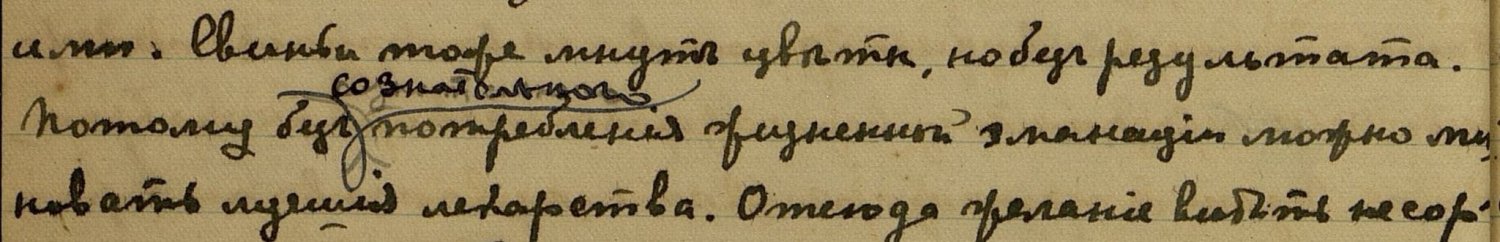 ими. Свиньи тоже мнутъ цвѣты, но безъ результата.
сознательнаго
Потому безъ потребленія жизненной эманаціи можно ми-
новать лучшія лекарства. Отсюда желаніе видѣть не сор-